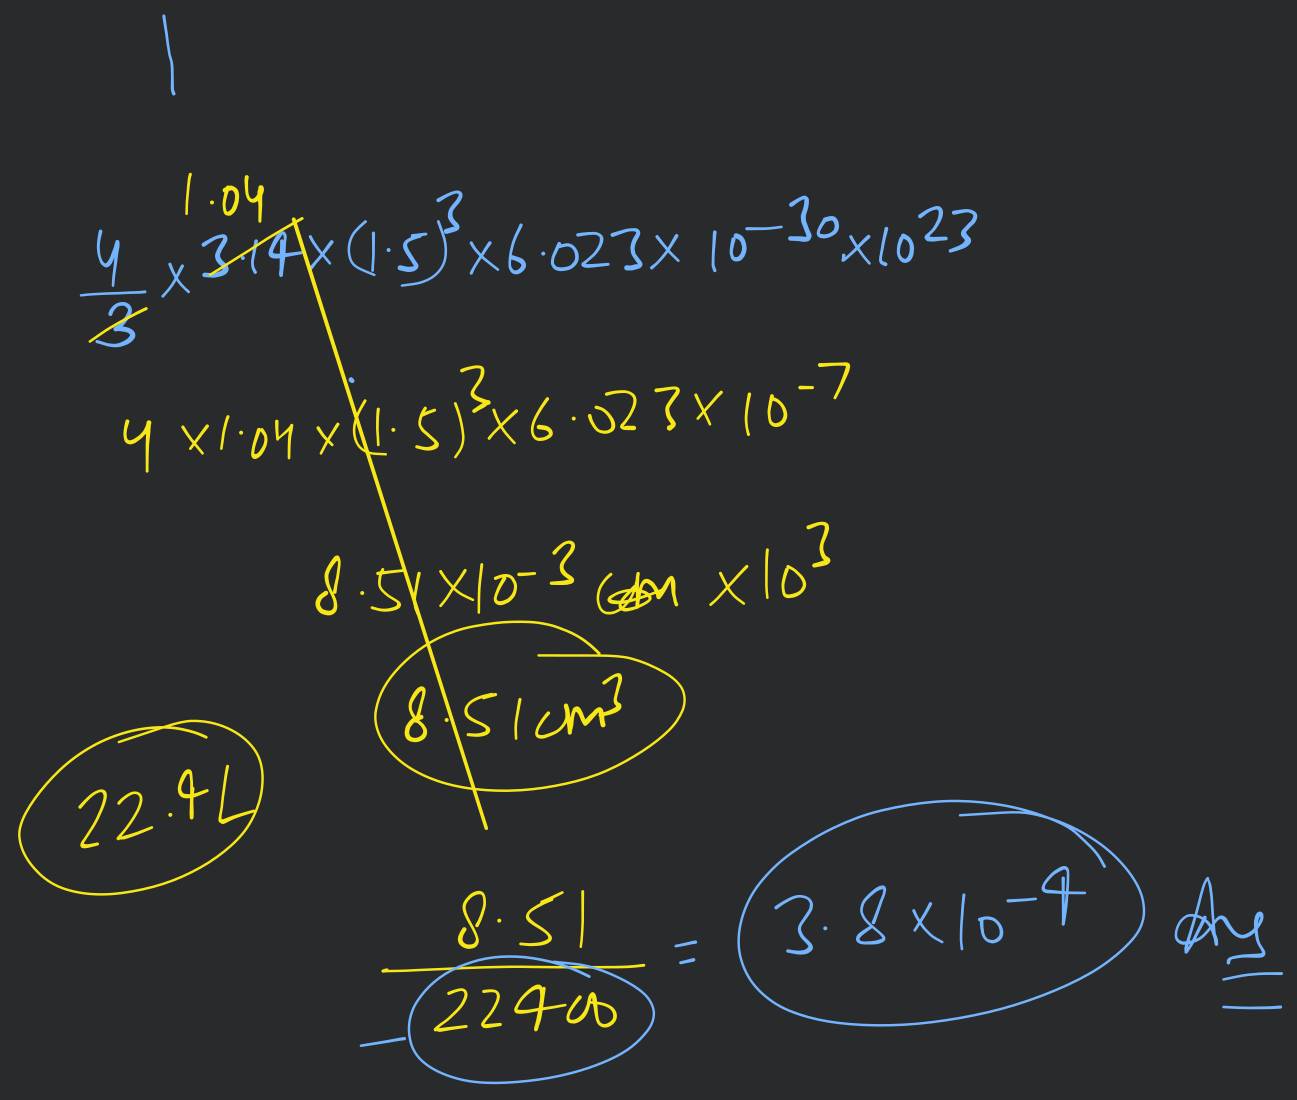 1.04
4/3 × 3.14 × (1.5)³ × 6.023 × 10⁻³⁰ × 10²³
4 × 1.04 × (1.5)³ × 6.023 × 10⁻⁷
8.51 × 10⁻³ × 10³
8.51 cm³
22.4L
8.51/22400 = 3.8 × 10⁻⁴ Ans